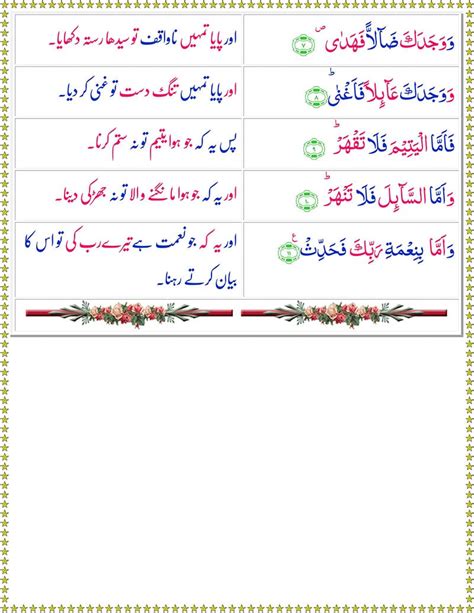 وَوَجَدَكَ ضَآلًّا فَهَدٰى ۪ ﴿۷﴾
اور پایا تمہیں ناواقف تو سیدھا رستہ دکھایا۔
وَوَجَدَكَ عَآئِلًا فَاَغْنٰى ؕ ﴿۸﴾
اور پایا تمہیں تنگ دست تو غنی کر دیا۔
فَاَمَّا الْيَتِيْمَ فَلَا تَقْهَرْ ؕ ﴿۹﴾
پس یہ کہ جو ہوا یتیم تو نہ ستم کرنا۔
وَاَمَّا السَّآئِلَ فَلَا تَنْهَرْ ؕ ﴿۱۰﴾
اور یہ کہ جو ہوا مانگنے والا تو نہ جھڑکی دینا۔
وَاَمَّا بِنِعْمَةِ رَبِّكَ فَحَدِّثْ ۧ ﴿۱۱﴾
اور یہ کہ جو نعمت ہے تیرے رب کی تو اس کا
بیان کرتے رہنا۔